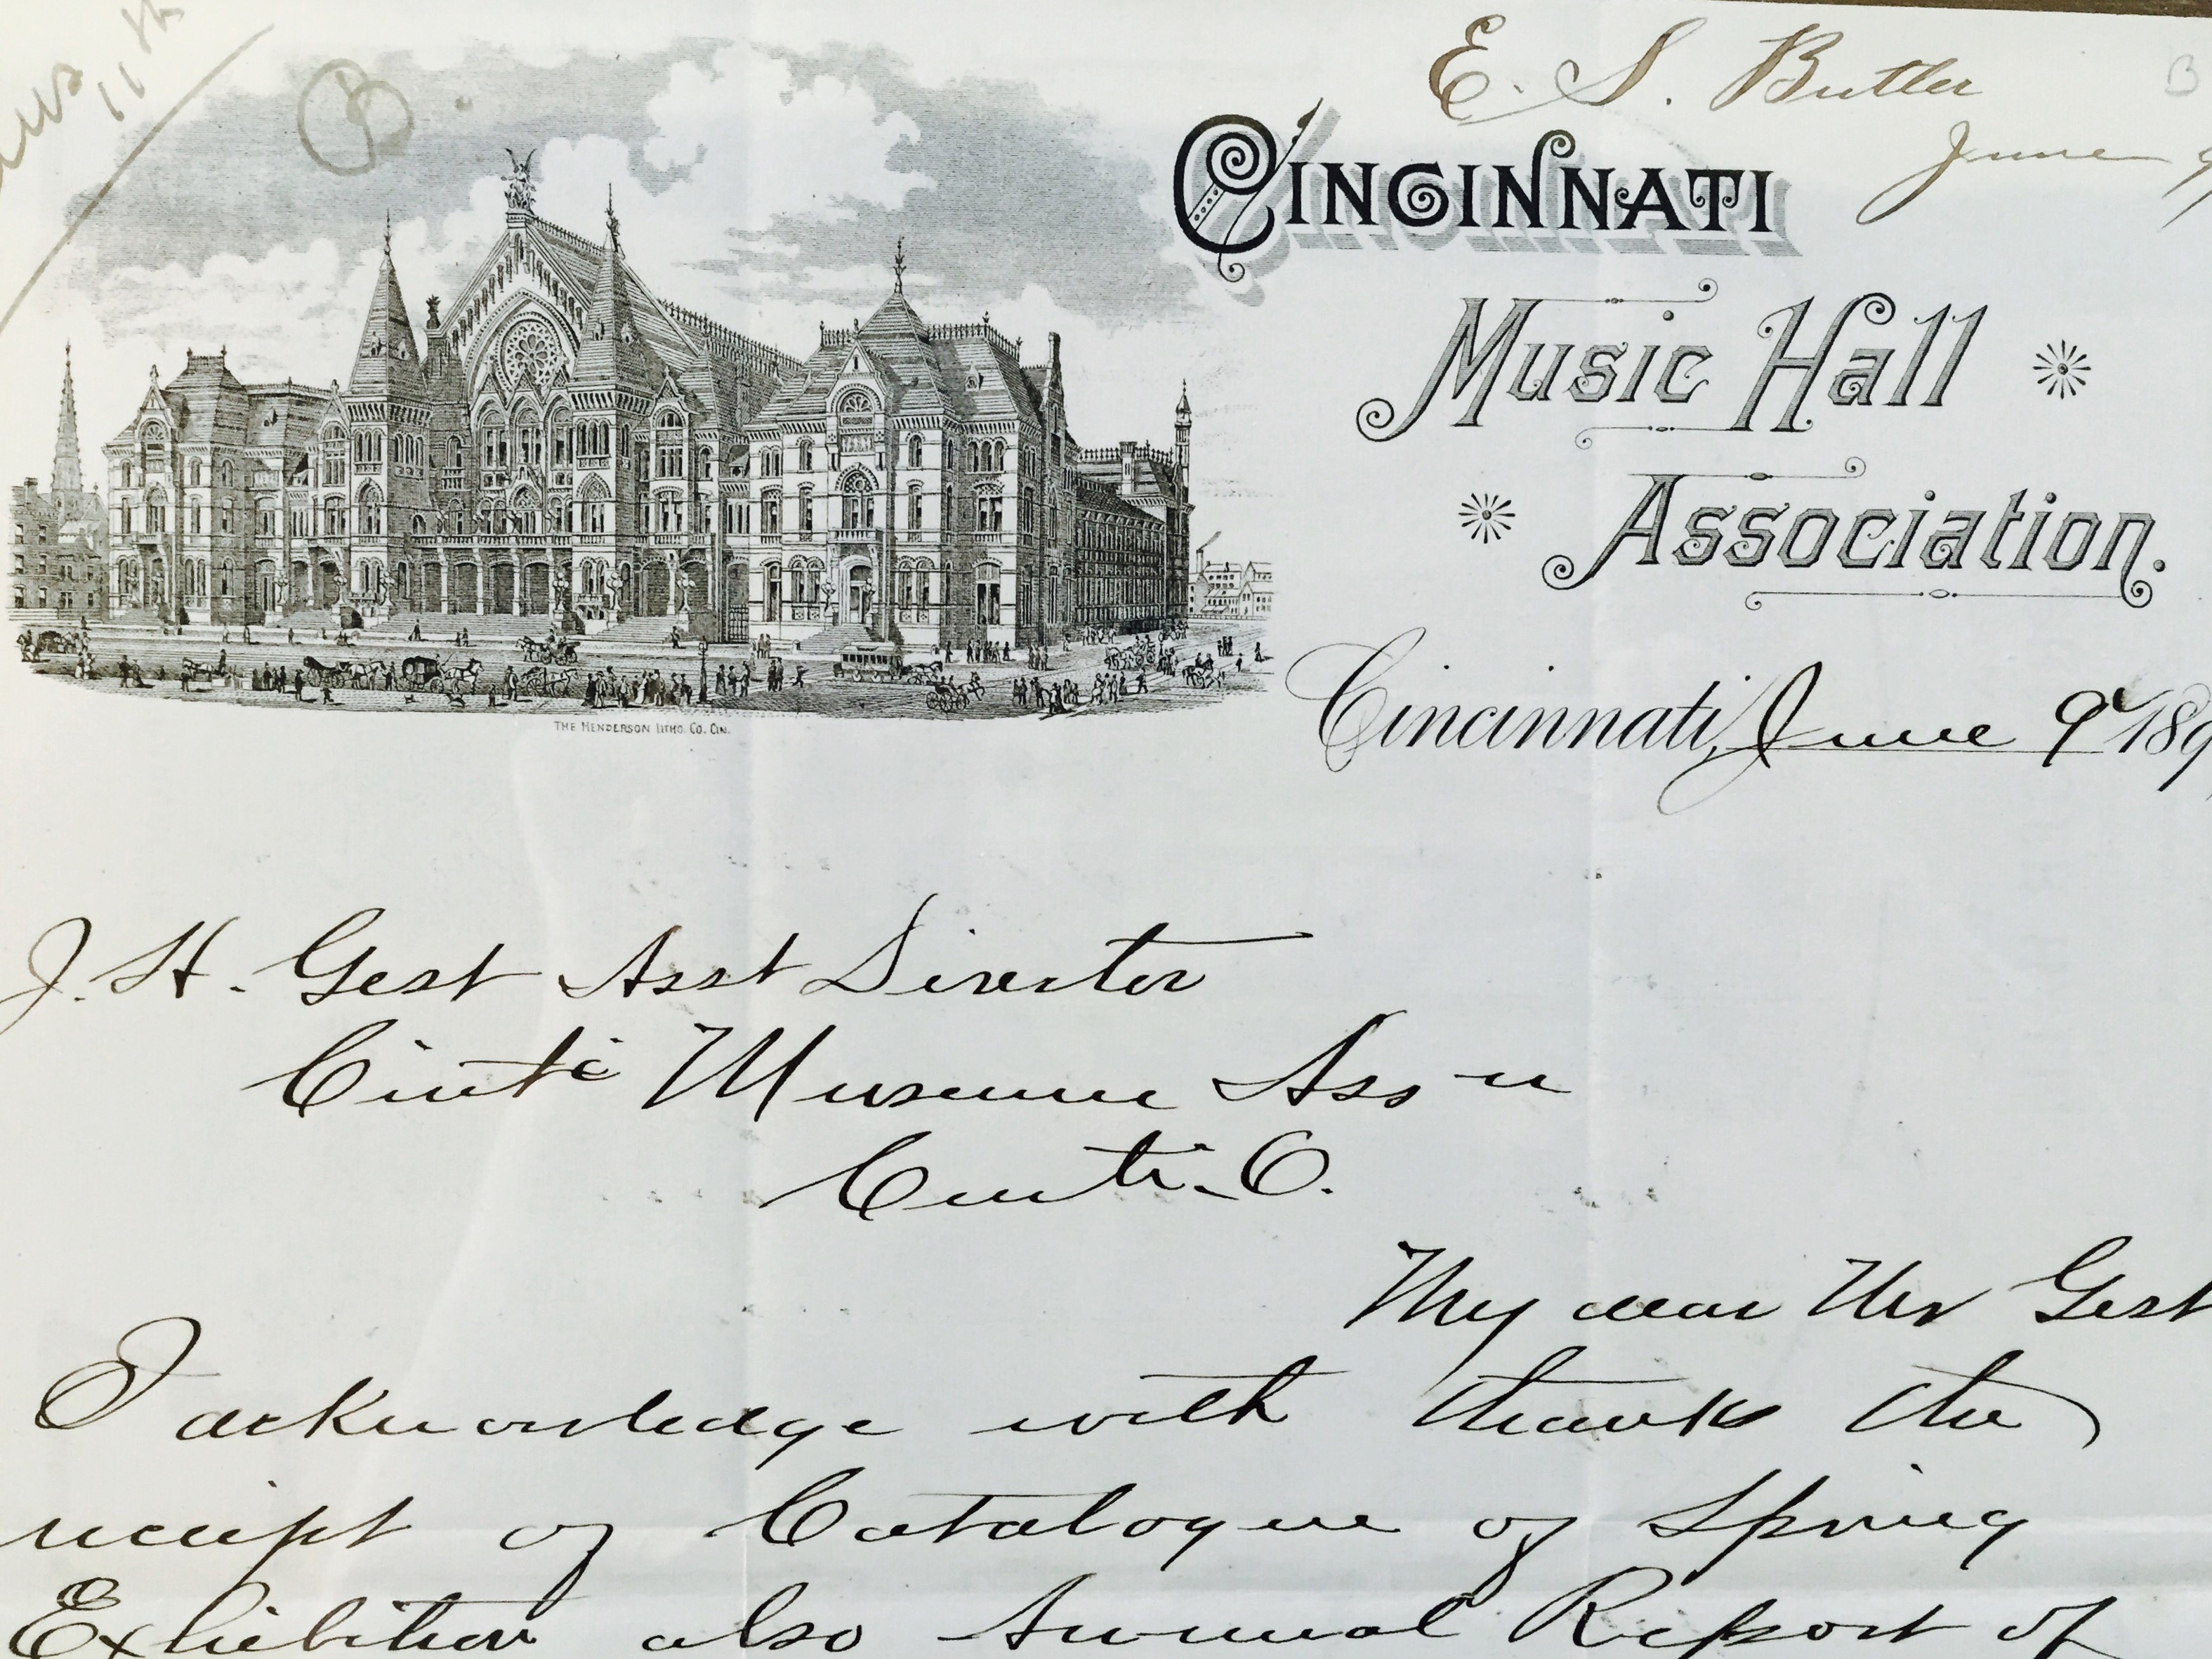 11th
B
E. S. Butler
B
June 9
CINCINNATI
Music Hall
Association.
THE HENDERSON LITHO. CO. CIN.
Cincinnati, June 9th 189
J. H. Gest Asst Director
Cinti Museum Ass-n
Cinti-O.
My dear Mr Gest
I acknowledge with thanks the
receipt of Catalogue of Spring
Exhibition also Annual Report of